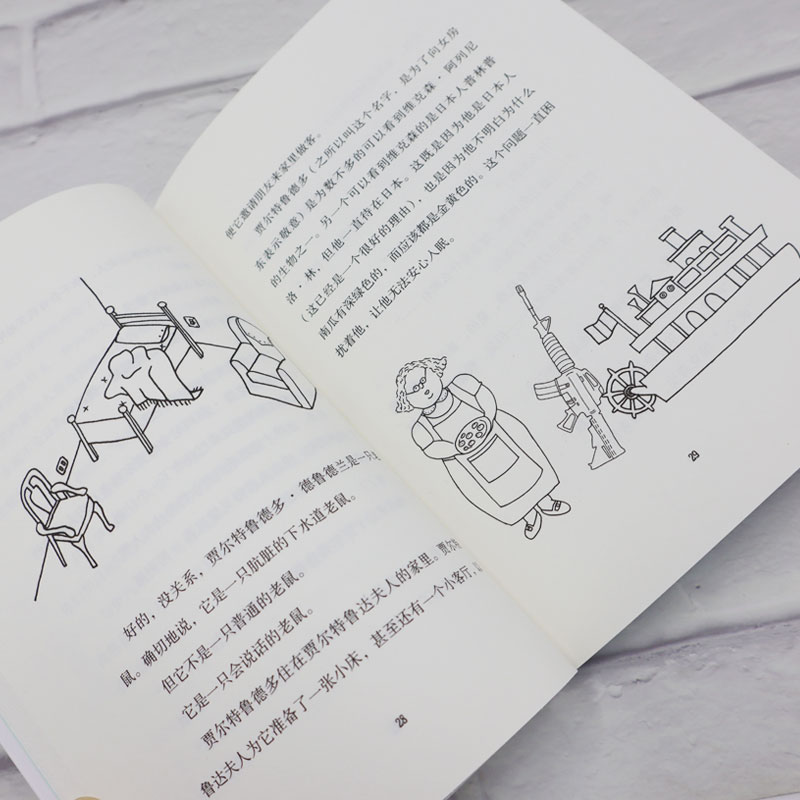 好的，没关系，贾尔特鲁德多·德鲁德兰是一只
鼠。确切地说，它是一只肮脏的下水道老鼠。
但它不是一只普通的老鼠。
它是一只会说话的老鼠。
贾尔特鲁德多住在贾尔特鲁达夫人的家里。贾尔
鲁达夫人为它准备了一张小床，甚至还有一个小客厅，
28
便它邀请朋友来家里做客。
贾尔特鲁德多（之所以叫这个名字，是为了向女房
东表示敬意）是为数不多的可以看到维克森·阿列尼
的生物之一。另一个可以看到维克森的是日本人普林普
洛·林，但他一直待在日本。这既是因为他是日本人
（这已经是一个很好的理由），也是因为他不明白为什么
南瓜有深绿色的，而应该都是金黄色的。这个问题一直困
扰着他，让他无法安心入眠。
29